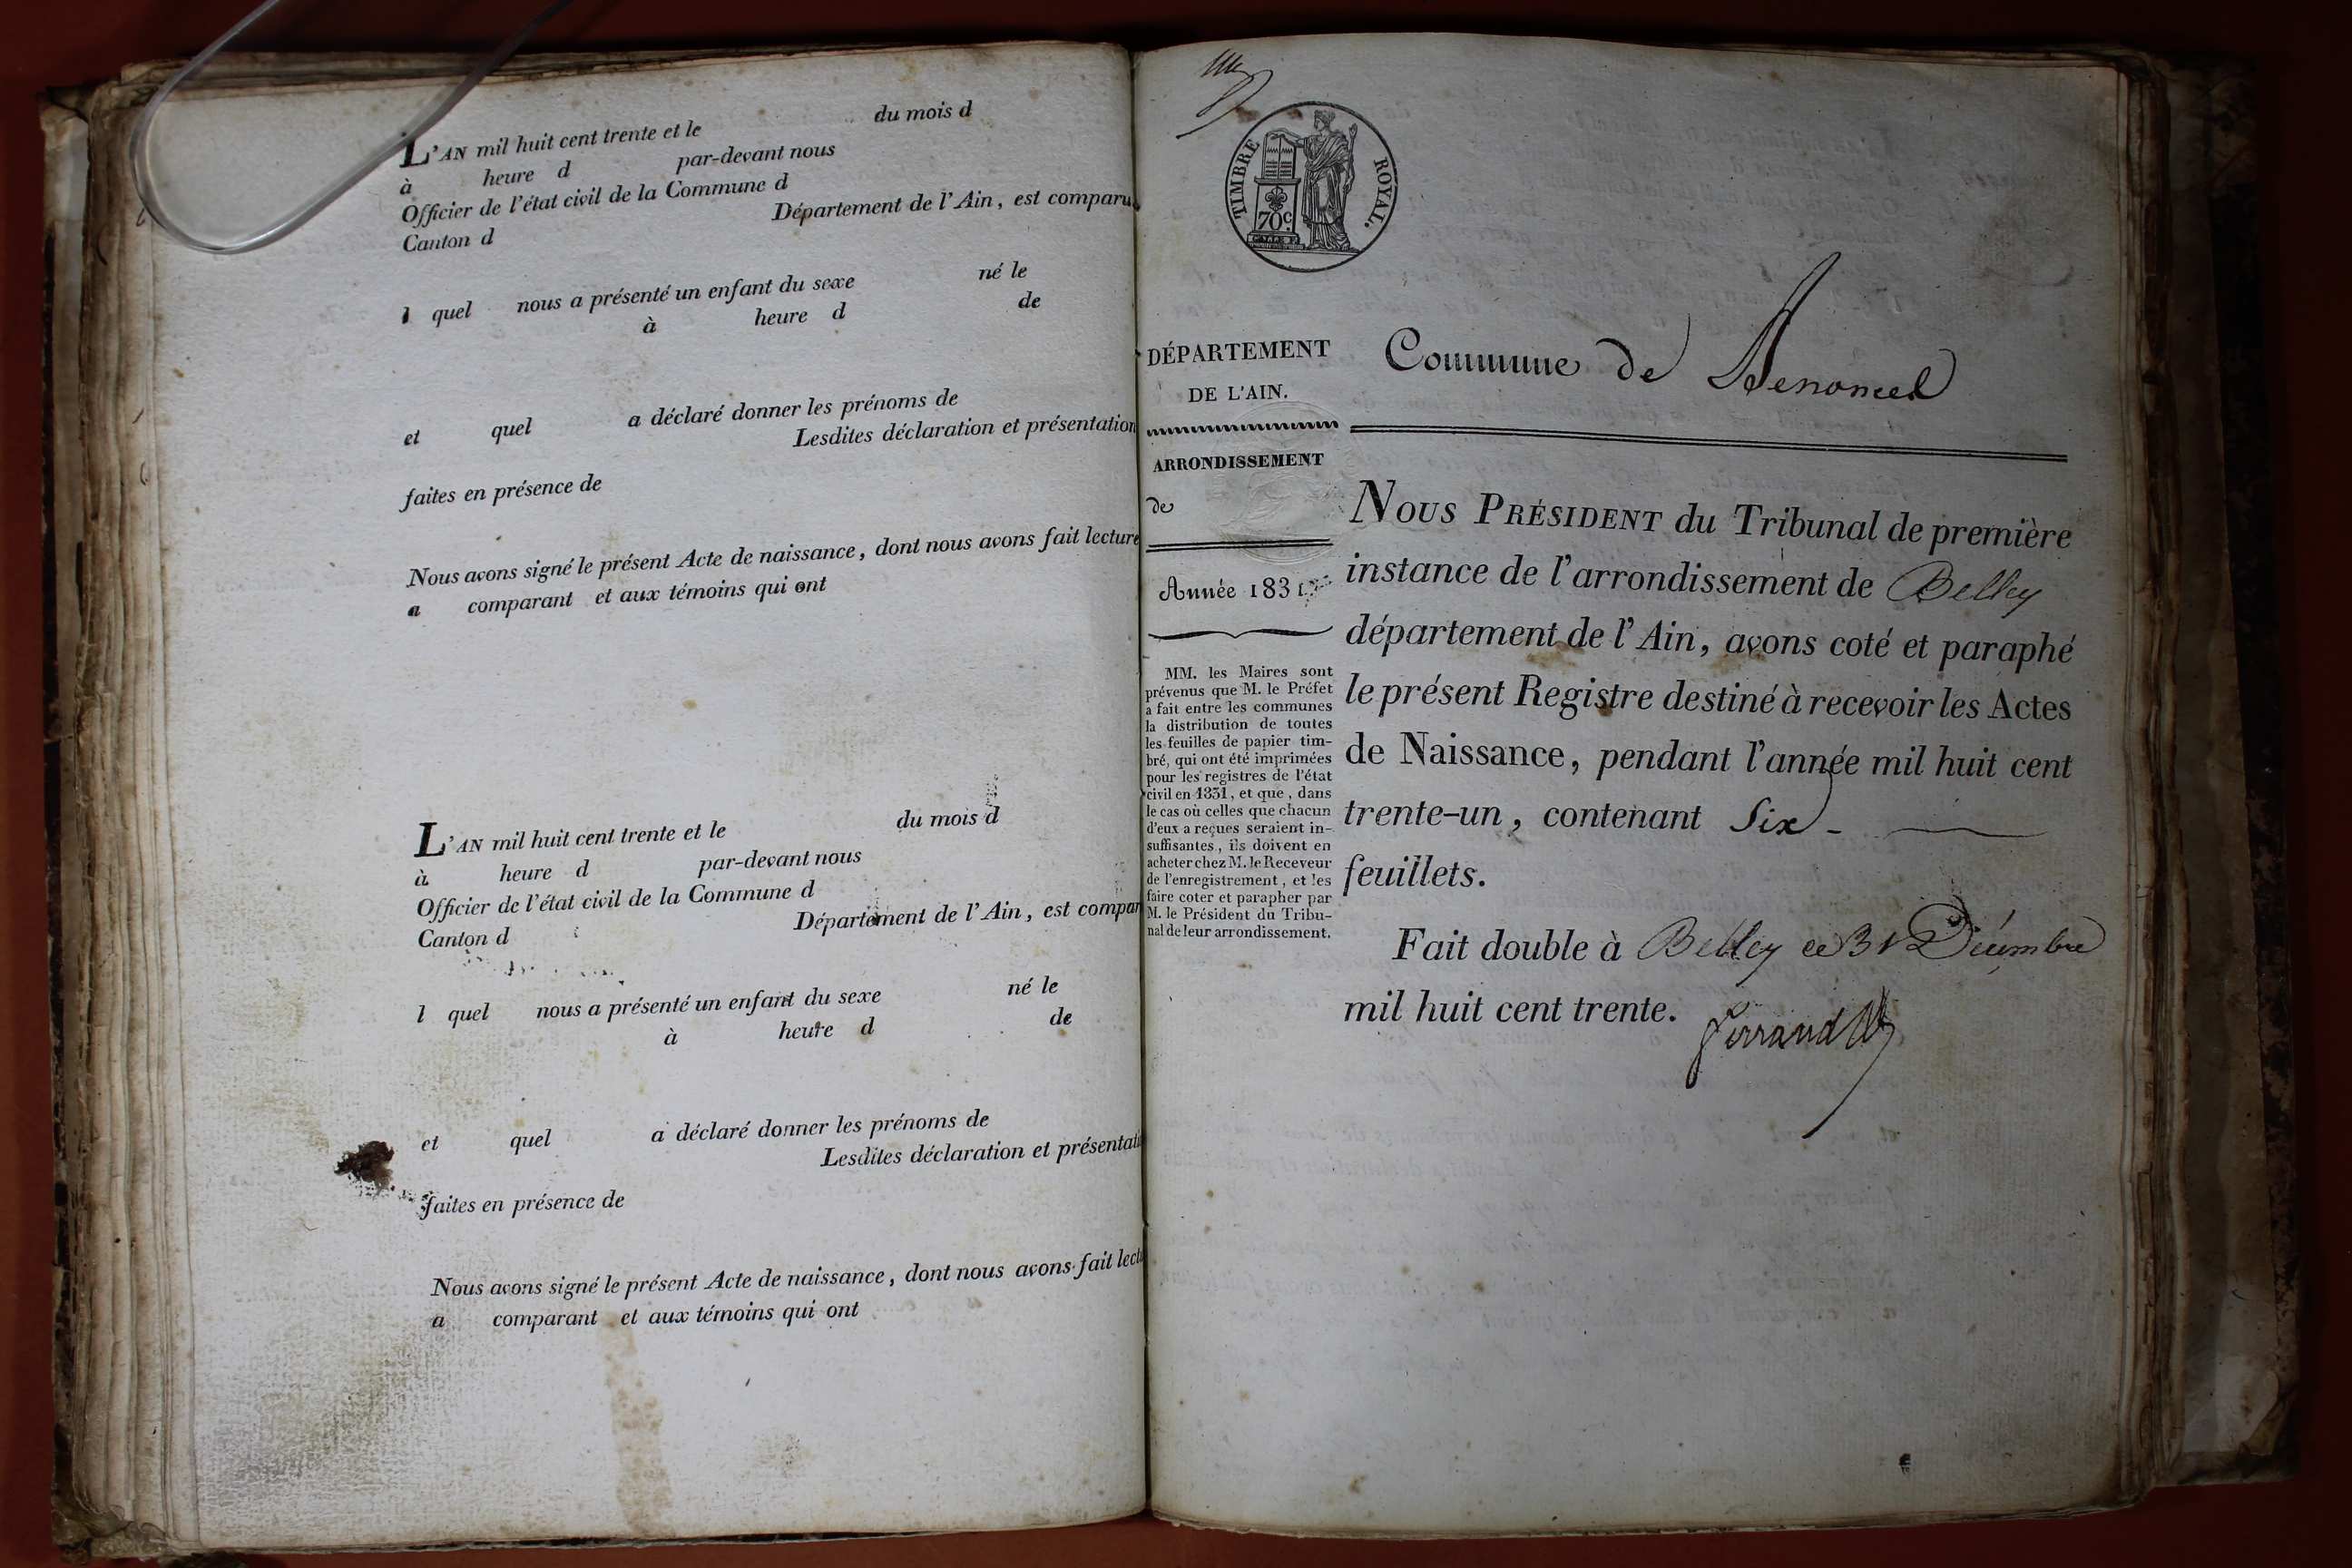 L'AN mil huit cent trente et le du mois d
à heure d par-devant nous
Officier de l'état civil de la Commune d
Canton d Département de l'Ain, est comparu
l quel nous a présenté un enfant du sexe né le
à heure d de
et quel a déclaré donner les prénoms de
Lesdites déclaration et présentation
faites en présence de
Nous avons signé le présent Acte de naissance, dont nous avons fait lecture
a comparant et aux témoins qui ont
L'AN mil huit cent trente et le du mois d
à heure d par-devant nous
Officier de l'état civil de la Commune d
Canton d Département de l'Ain, est compar
l quel nous a présenté un enfant du sexe né le
à heure d de
et quel a déclaré donner les prénoms de
Lesdites déclaration et présentati
faites en présence de
Nous avons signé le présent Acte de naissance, dont nous avons fait lectu
a comparant et aux témoins qui ont
TIMBRE ROYAL.
70c.
DÉPARTEMENT
DE L'AIN.
ARRONDISSEMENT
de
Année 1831
MM. les Maires sont
prévenus que M. le Préfet
a fait entre les communes
la distribution de toutes
les feuilles de papier tim-
bré, qui ont été imprimées
pour les registres de l'état
civil en 1831, et que, dans
le cas où celles que chacun
d'eux a reçues seraient in-
suffisantes, ils doivent en
acheter chez M. le Receveur
de l'enregistrement, et les
faire coter et parapher par
M. le Président du Tribu-
nal de leur arrondissement.
Commune de
NOUS PRÉSIDENT du Tribunal de première
instance de l'arrondissement de Belley
département de l'Ain, avons coté et paraphé
le présent Registre destiné à recevoir les Actes
de Naissance, pendant l'année mil huit cent
trente-un, contenant Six -
feuillets.
Fait double à Belley ce 31 Décembre
mil huit cent trente.